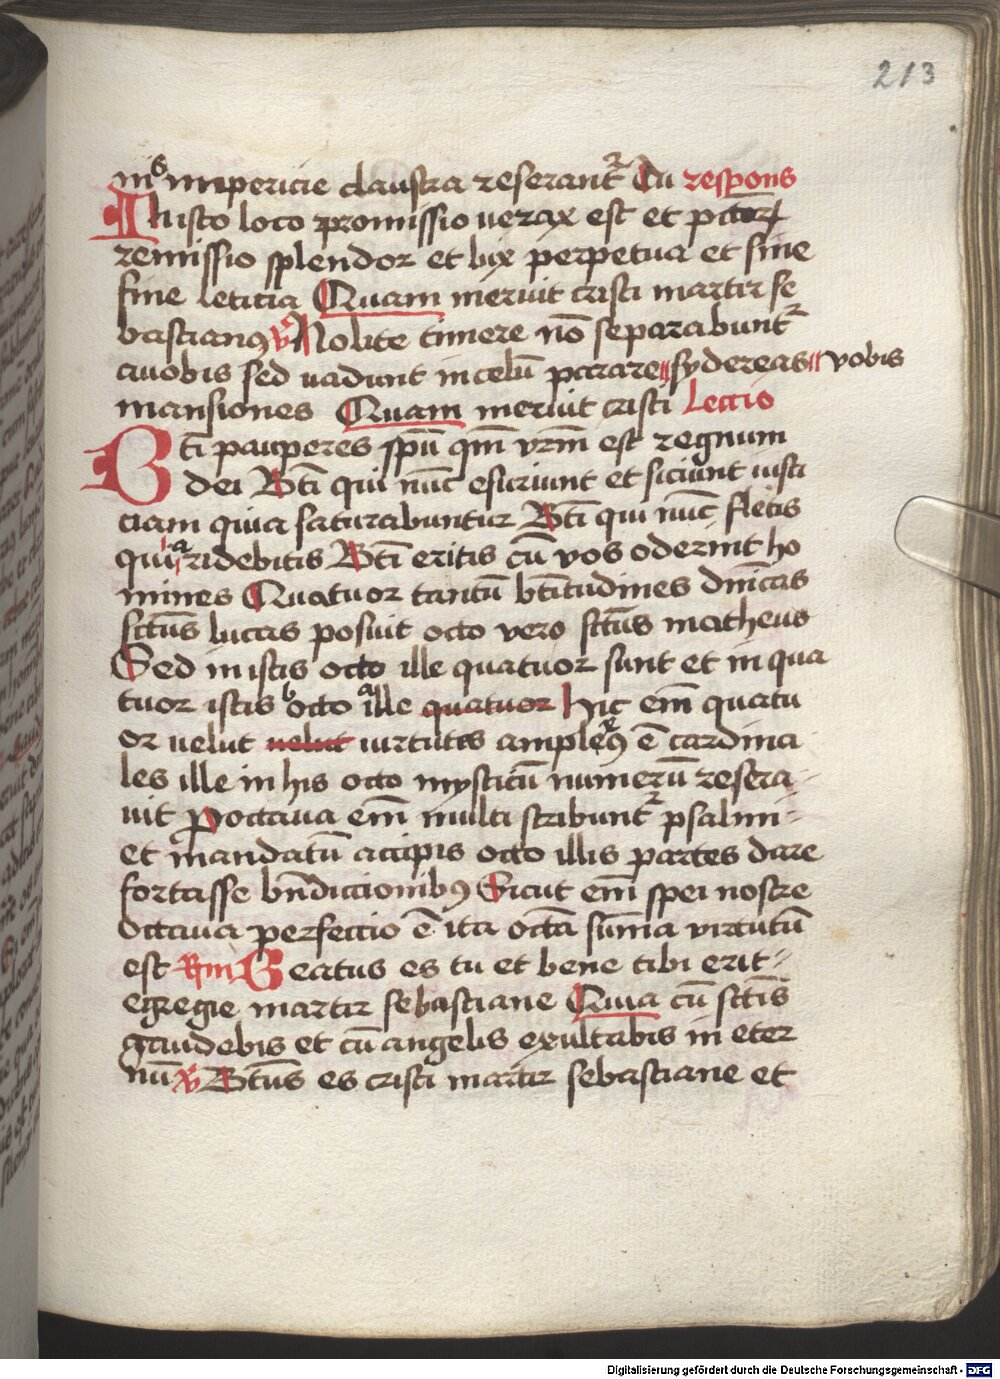 213
impericie claustra reserantᷣ Tu respons
In isto loco promissio uerax est et pctōrꝝ
remissio splendor et lux perpetua et sine
fine leticia Quam meruit cristi martir se
bastianꝯ ℣ Nolite timere nō separabuntᷣ
auobis sed uadunt in celū parare sydereas vobis
mansiones Quam meruit cristi Lectio
Bti pauperes spū qm̄ vrm̄ est regnum
dei Bti qui nūc esuriunt et siciunt iusti
ciam quia saturabuntur Bti qui nūc fletis
quia ridebitis Bti eritis cū vos oderint ho
mines Quatuor tantū btitudines dnicas
sctūs lucas posuit octo vero sctūs matheus
Sed in istis octo ille quatuor sunt et in qua
tuor istis octo ille quatuor hic em̄ quatu
or uelut uelut uirtutes amplexꝯ ē cardina
les ille in his octo mysticū numerū resera
uit Pro octaua em̄ multi scribuntᷣ psalmi
et mandatū accipis octo illis partes dare
fortasse bn̄diccionibꝯ Sicut em̄ spei nostre
octaua perfectio ē ita octā sūma virtutū
est Rm̄ Beatus es tu et bene tibi erit
egregie martir sebastiane Quia cū sctīs
gaudebis et cū angelis exultabis in eter
nū ℣ Btūs es cristi martir sebastiane et
Digitalisierung gefördert durch die Deutsche Forschungsgemeinschaft - DFG